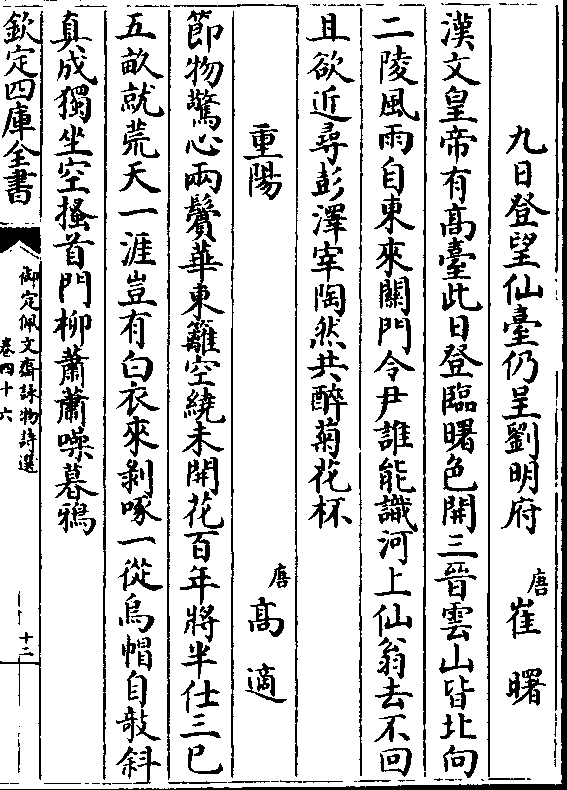 九日登望仙臺仍呈劉明府
唐
崔曙
漢文皇帝有髙臺此日登臨曙色開三晉雲山皆北向
二陵風雨自東來關門令尹誰能識河上仙翁去不回
且欲近尋彭澤宰陶然共醉菊花杯
重陽
唐
髙適
節物驚心兩鬢華東籬空繞未開花百年將半仕三已
五畝就荒天一涯豈有白衣來剝啄一從烏帽自敧斜
真成獨坐空搔首門柳蕭蕭噪暮鴉
欽定四庫全書
御定佩文齋詠物詩選
卷四十六
十二